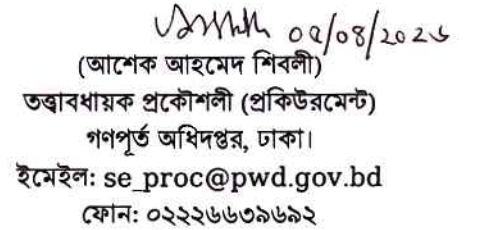 ০৫/০৪/২০২৬
(আশেক আহমেদ শিবলী)
তত্ত্বাবধায়ক প্রকৌশলী (প্রকিউরমেন্ট)
গণপূর্ত অধিদপ্তর, ঢাকা।
ইমেইল: se_proc@pwd.gov.bd
ফোন: ০২২২৬৬৩৯৬৯২